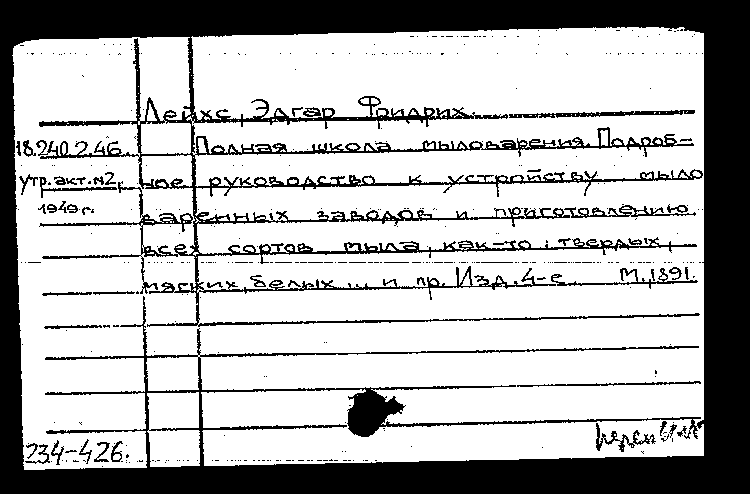 Лейхс, Эдгар Фридрих.
18.240.2.46. Полная школа мыловарения. Подроб-
утр.акт.№2, ное руководство к устройству мыло
1949 г. варенных заводов и приготовлению
всех сортов мыла, как-то: твердых,
мягких, белых ... и пр. Изд. 4-е М., 1891.
234-426.